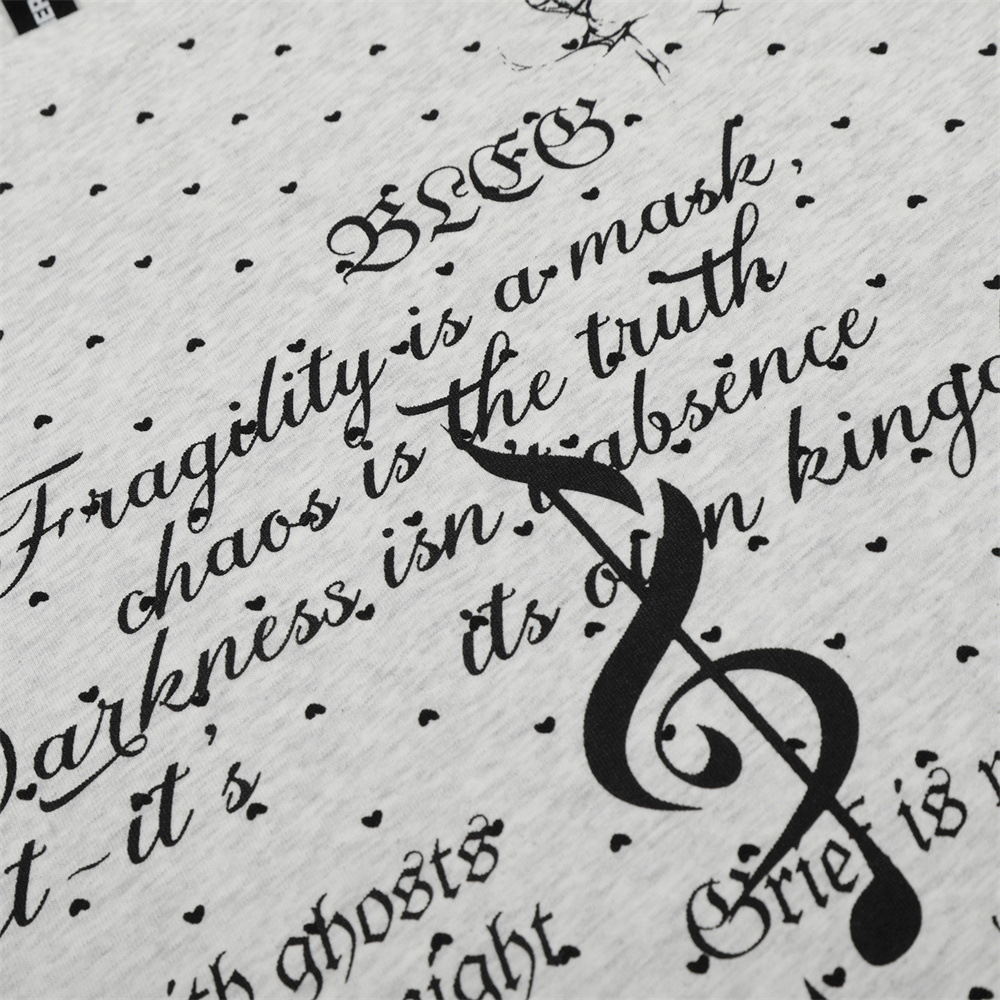 BLEG
Fragility is a mask,
chaos is the truth
Darkness isn't absence
t ~ it's its own kingd
Grief is
ith ghosts
ight.